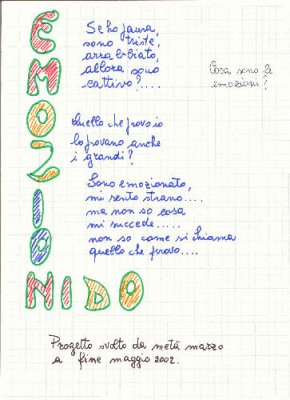 EMOZIO
NIDO
Se ho paura,
sono triste,
arrabbiato,
allora sono
cattivo?....
Cosa sono le
emozioni?
Quello che provo io
lo provano anche
i grandi?
Sono emozionato,
mi sento strano.....
ma non so cosa
mi succede.....
non so come si chiama
quello che provo....
Progetto svolto da metà marzo
a fine maggio 2002.